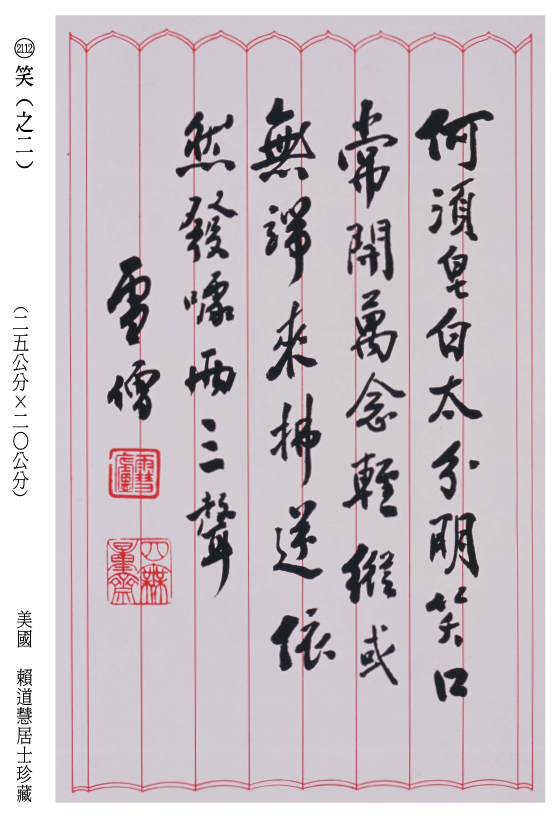 何須皂白太分明笑口
常開萬念輕縱或
無端來拂逆依
然發噱兩三聲
雪僧
雪慧廬
四無量齋
2112 笑（之二）
（二五公分×二〇公分）
美國 賴道慧居士珍藏